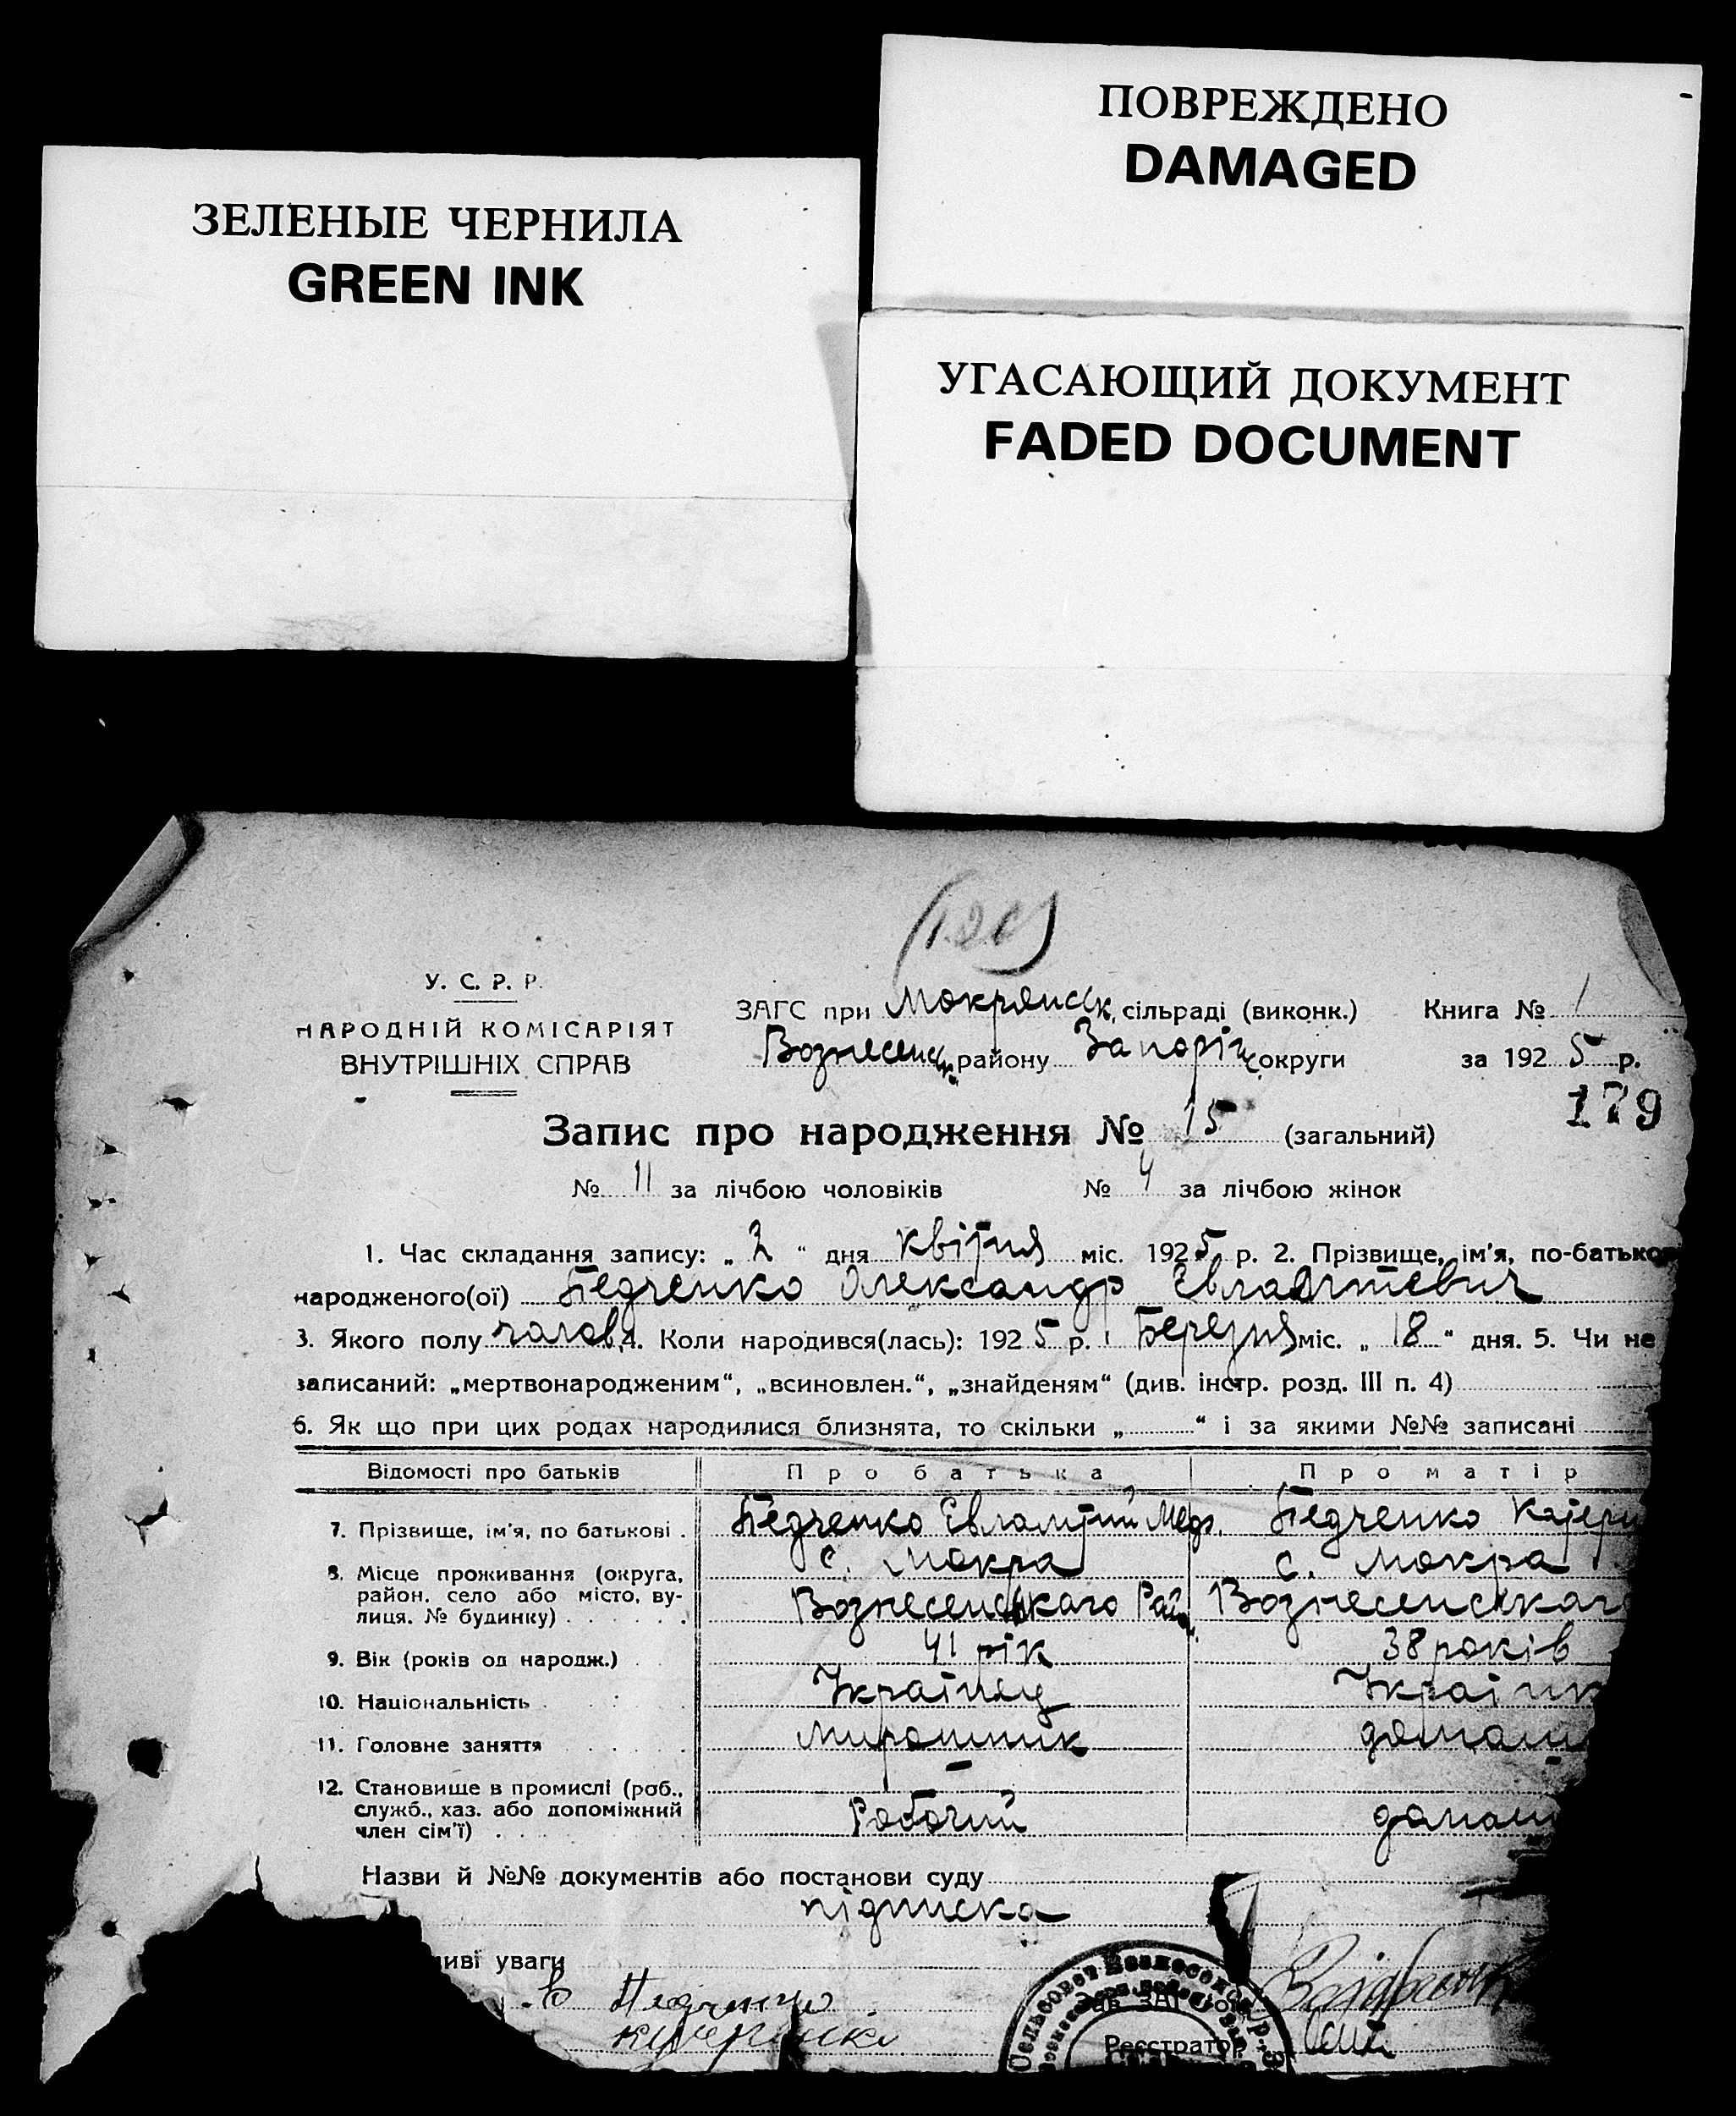 ПОВРЕЖДЕНО
DAMAGED
ЗЕЛЕНЫЕ ЧЕРНИЛА
GREEN INK
УГАСАЮЩИЙ ДОКУМЕНТ
FADED DOCUMENT
У. С. Р. Р.
НАРОДНІЙ КОМІСАРІЯТ
ВНУТРІШНІХ СПРАВ
ЗАГС при Мокрянск. сільраді (виконк.) Книга № 1
Вознесенськ. району Запоріж. округи за 1925 р.
179
Запис про народження № 15 (загальний)
№ 11 за лічбою чоловіків № 4 за лічбою жінок
1. Час складання запису: „ 2 “ дня квітня міс. 1925 р. 2. Прізвище, ім'я, по-батьков
народженого(ої) Педченко Олександр Євлампієвич
3. Якого полу чолов. 4. Коли народився(лась): 1925 р. Березня міс. „ 18 “ дня. 5. Чи не
записаний: „мертвонародженим“, „всиновлен.“, „знайденям“ (див. інстр. розд. III п. 4)
6. Як що при цих родах народилися близнята, то скільки „ “ і за якими №№ записані
Відомості про батьків Про батька Про матір
7. Прізвище, ім'я, по батькові . Педченко Євлампій Мед. Педченко Катери
8. Місце проживання (округа, с. Мокра с. Мокра
район, село або місто, ву-
лиця, № будинку) Вознесенскаго Рай. Вознесенскаго
9. Вік (років од народж.) 41 рік 38 років
10. Національність Українец Українк
11. Головне заняття Мирошник домаш
12. Становище в промислі (роб., –
служб., хаз. або допоміжний
член сім'ї) Робочий домаш
Назви й №№ документів або постанови суду
підписка
иві уваги
Педченко
Зав. ЗАГС'ом
Реєстратор